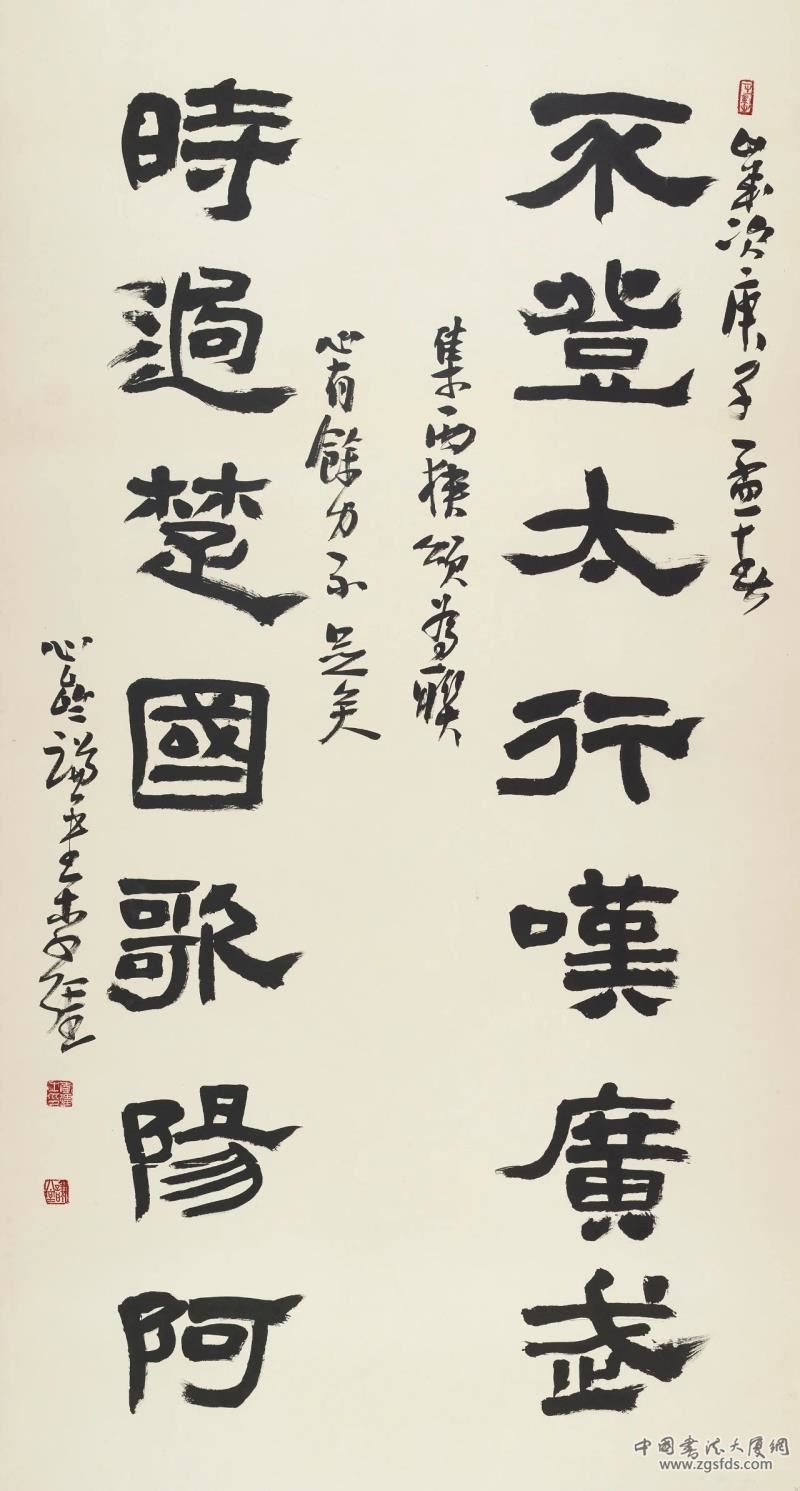 歲次庚子孟春
不登太行嘆廣武
集西狹頌為聯
心有餘力不足矣
時過楚國歌陽阿
中國書法大厦網
www.zgsfds.com